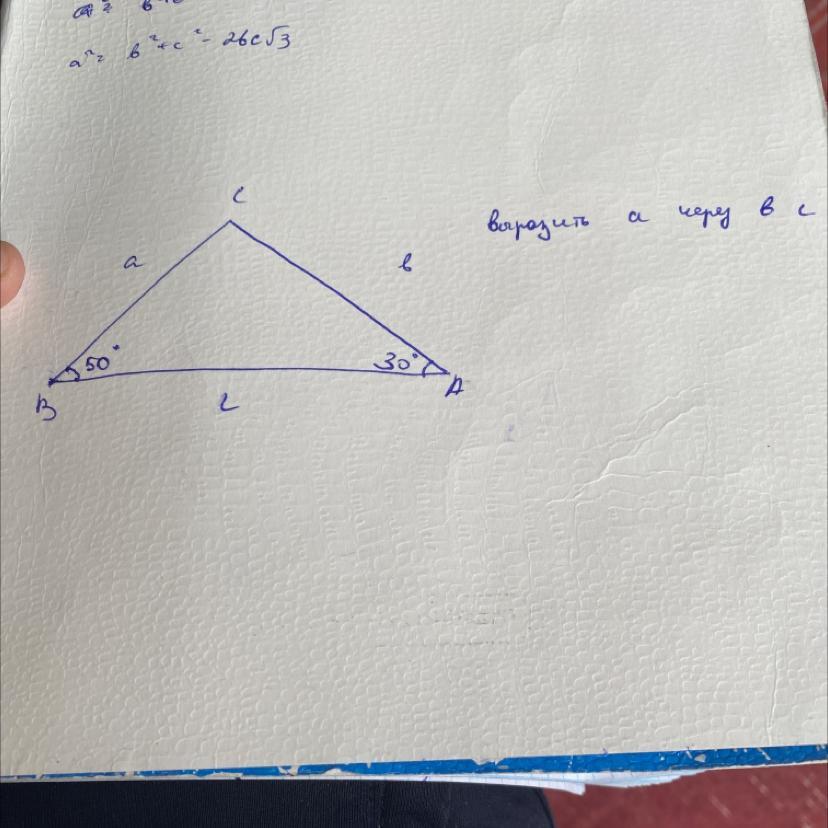 a² = b² + c² - 2bc√3
C
выразить а через в с
a
в
50°
30°
B
c
A